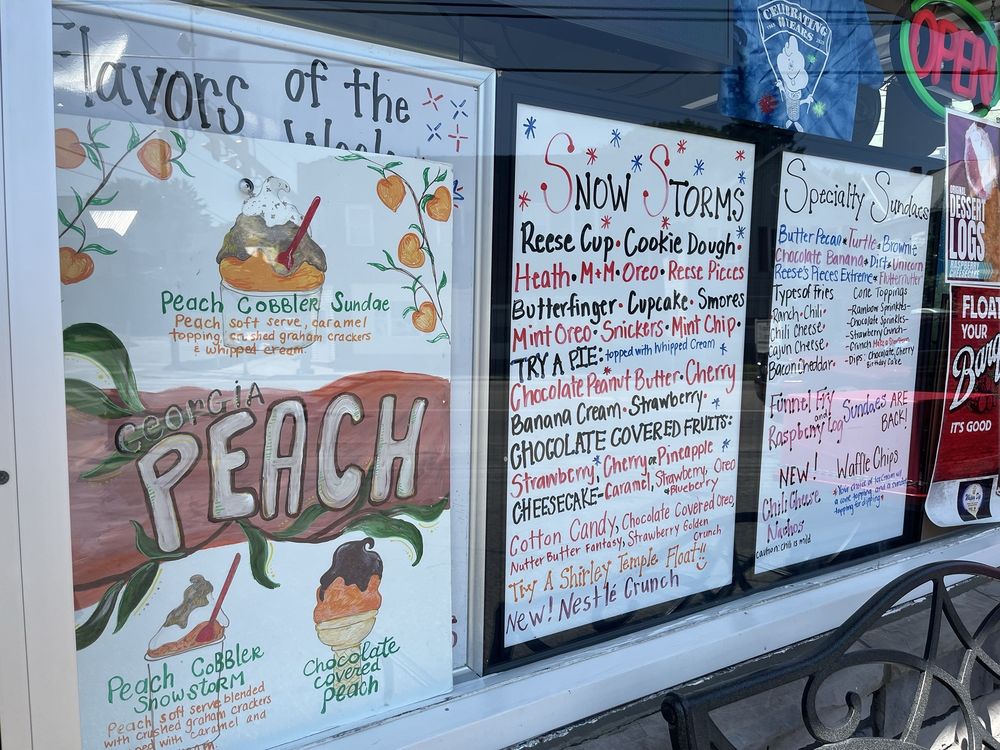 Flavors of the
Week
Peach Cobbler Sundae
Peach soft serve, caramel
topping, crushed graham crackers
& whipped cream.
Georgia
PEACH
Peach Cobbler
Snowstorm
Peach soft serve blended
with crushed graham crackers
with caramel and
Chocolate
covered
peach
Snow Storms
Reese Cup • Cookie Dough •
Heath • M+M • Oreo • Reese Pieces
Butterfinger • Cupcake • Smores
Mint Oreo • Snickers • Mint Chip •
TRY A PIE: topped with Whipped Cream
Chocolate Peanut Butter • Cherry
Banana Cream • Strawberry •
CHOCOLATE COVERED FRUITS:
Strawberry, Cherry or Pineapple
CHEESECAKE= Caramel, Strawberry, Oreo
Blueberry
Cotton Candy, Chocolate Covered Oreo,
Nutter Butter Fantasy, Strawberry Golden
Crunch
Try A Shirley Temple Float!!
New! Nestlé Crunch
Specialty Sundaes
Butter Pecan • Turtle • Brownie
Chocolate Banana • Dirt • Unicorn
Reese's Pieces Extreme • Flutternutter
Types of Fries
Ranch • Chili •
Chili Cheese •
Cajun Cheese •
Bacon Cheddar •
Cone Toppings
- Rainbow Sprinkles -
- Chocolate Sprinkles -
- Strawberry Crunch -
- Crunch
- Dips: Chocolate, Cherry
Birthday Cake
Funnel Fry
and
Raspberry Log
Sundaes ARE
BACK!
NEW!
Chili Cheese
Nachos
caution: chili is mild
Waffle Chips
*Your choice of ice cream w/
a cone topping and a sundae
topping for dipping!
CELEBRATING
80 YEARS
OPEN
ORIGINAL
DESSERT
LOGS
CHEESECAKE
FLOAT
YOUR
IT'S GOOD